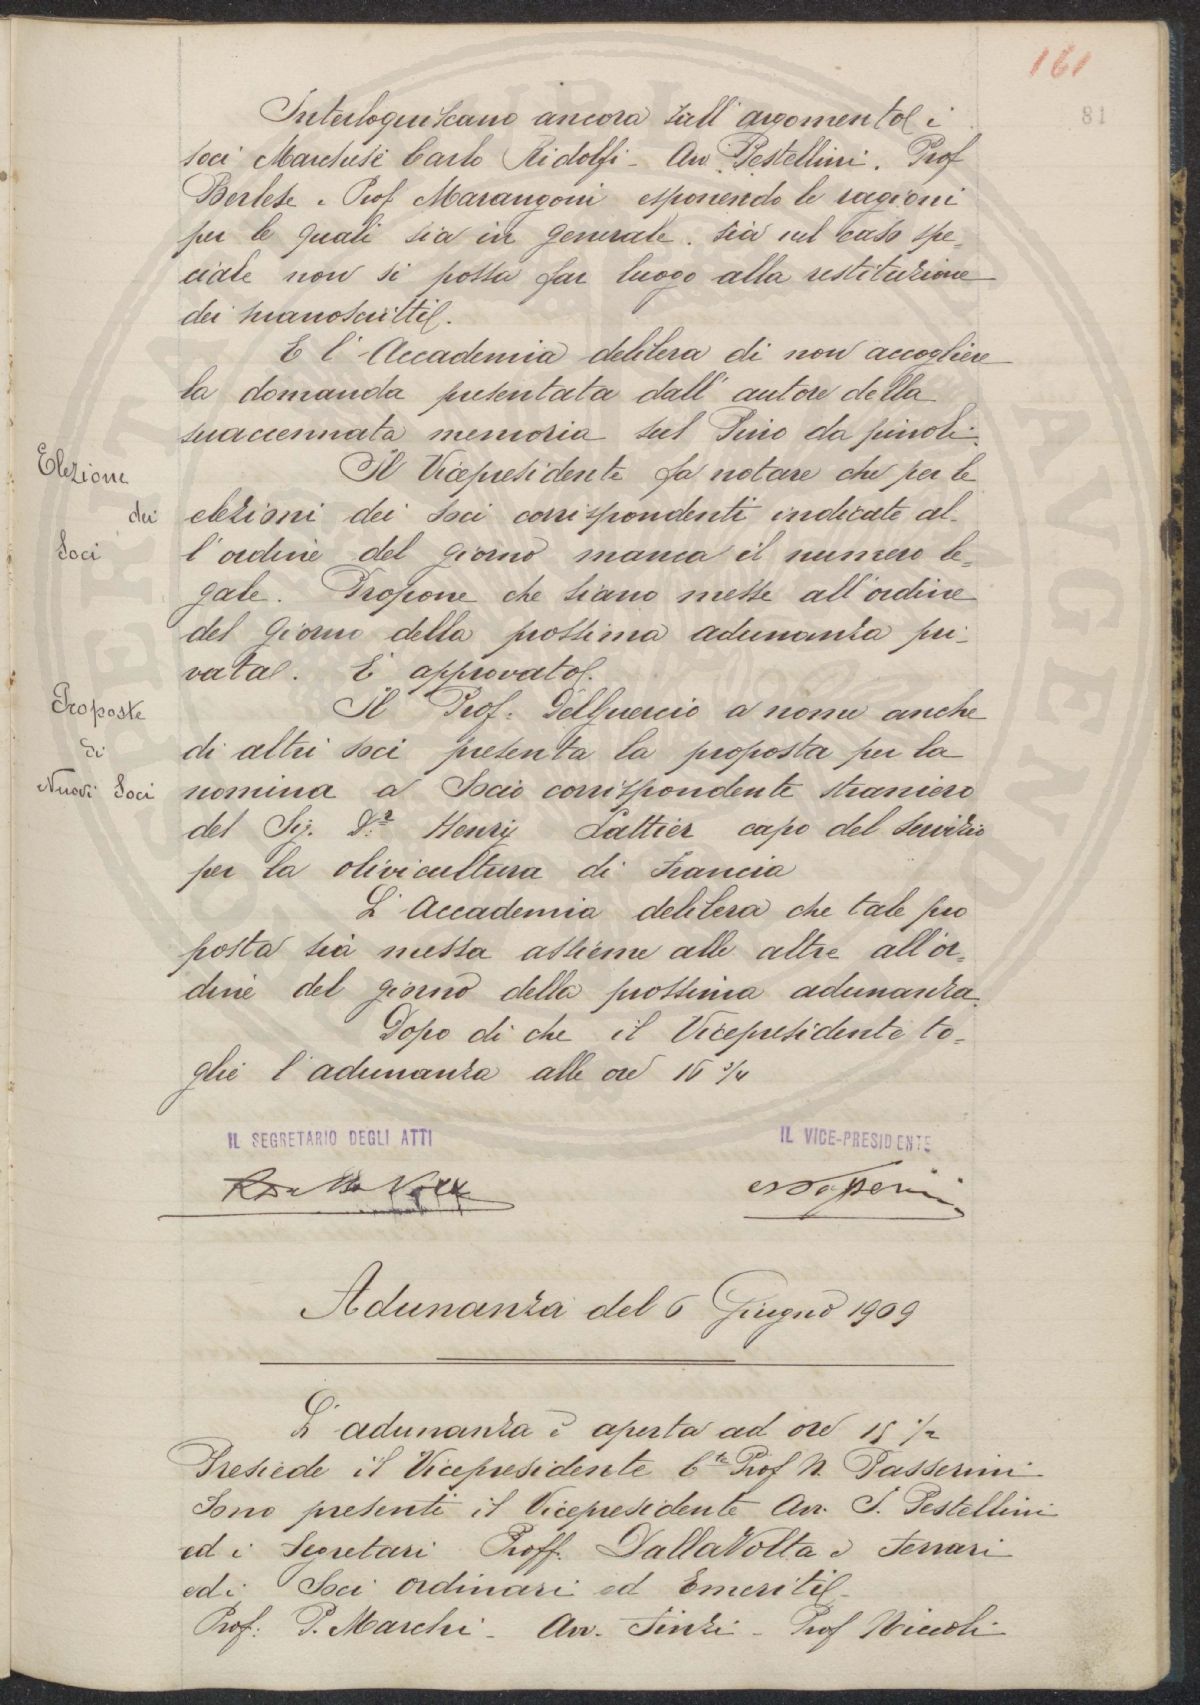 161
81
Interloquiscano ancora sull'argomento i
soci Marchese Carlo Ridolfi - Avv. Pestellini. Prof
Berlese e Prof Marangoni esponendo le ragioni
per le quali sia in generale. sia nel caso spe=
ciale non si possa far luogo alla restituzione
dei manoscritti.
E l'Accademia delibera di non accogliere
la domanda presentata dall'autore della
suaccennata memoria sul Pino da pinoli.
Elezione
dei
Soci
Il Vicepresidente fa notare che per le
elezioni dei soci corrispondenti indicate al-
l'ordine del giorno manca il numero le=
gale. Propone che siano messe all'ordine
del giorno della prossima adunanza pri-
vata. E' approvato.
Proposte
di
Nuovi Soci
Il Prof. DelGuercio a nome anche
di altri soci presenta la proposta per la
nomina a Socio corrispondente straniero
del Sig. D.r Henry Lattier capo del Servizio
per la olivicultura di Francia
L'Accademia delibera che tale pro
posta sia messa assieme alle altre all'or=
dine del giorno della prossima adunanza.
Dopo di che il Vicepresidente to=
glie l'adunanza alle ore 16 3/4
IL SEGRETARIO DEGLI ATTI
IL VICE-PRESIDENTE
R Dalla Volta
N Passerini
Adunanza del 6 Giugno 1909
L'adunanza è aperta ad ore 15 1/2
Presiede il Vicepresidente C.te Prof N. Passerini
Sono presenti il Vicepresidente Avv. I. Pestellini
ed i Segretari Proff. DallaVolta e Ferrari
ed i Soci ordinari ed Emeriti
Prof. P. Marchi - Avv. Finzi - Prof Niccoli